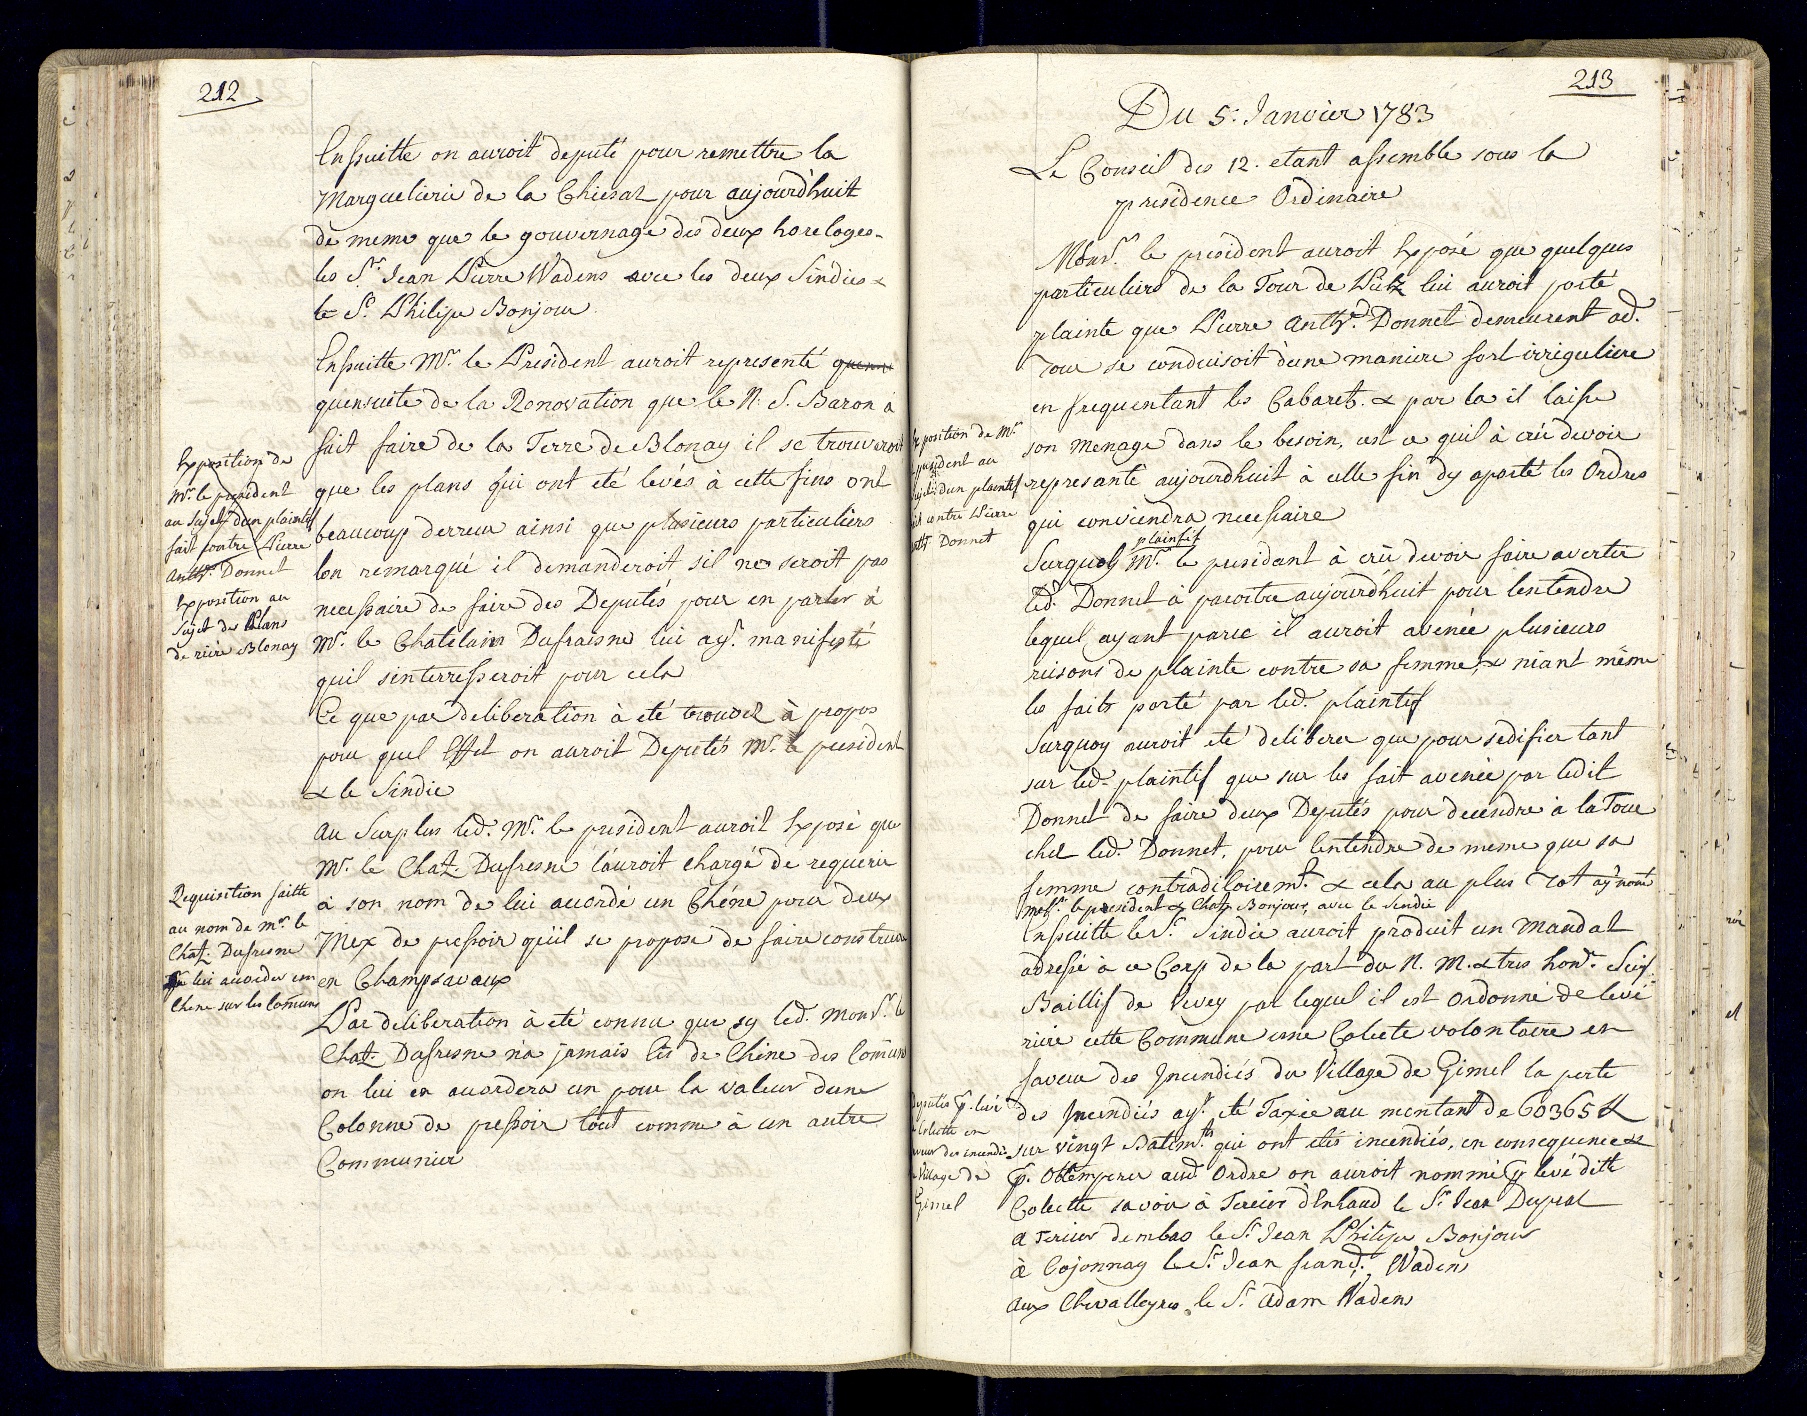 212
Ensuitte on auroit deputé pour remettre la
Marguelierie de la Chiesaz pour aujourd'huit
de meme que le gouvernage des deux horeloges
les Sr. Jean Pierre Wadens avec les deux Sindics &
le Sr. Philipe Bonjour
Ensuitte Mr. le President auroit representé
quensuite de la Renovation que le N. S. Baron à
fait faire de la Terre de Blonay il se trouveroit
que les plans qui ont eté levés à cette fins ont
beaucoup derreur ainsi que plusieurs particuliers
lon remarqué il demanderoit sil ne seroit pas
necessaire de faire des Deputés pour en parler à
Mr. le Chatelain Dufraisne lui ayt. manifesté
quil sinterresseroit pour cela
Ce que par deliberation à eté trouvez à propos
pour quel Effet on auroit Deputés Mr. le president
& le Sindic
Au Surplus led. Mr. le president auroit Exposé que
Mr. le Chat. Dufresne l'auroit chargé de requerir
à son nom de lui accordé un Chéne pour deux
Mex de pressoir qu'il se propose de faire construire
en Champsavaux
Par deliberation à eté connu que sy led. Monsr. le
Chat. Dufresne n'a jamais eu de Chêne des Comuns
on lui en accordera un pour la valeur dune
Colonne de pressoir tout comme à un autre
Communier
Exposition de
Mr. le president
au sujet dun plaintif
fait contre Pierre
Anthe. Donnet
Exposition au
Sujet des Plans
de riére Blonay
Requisition faitte
au nom de Mr. le
Chat. Dufresne
lui accorder un
Chene sur les Comuns
213
Du 5: Janvier 1783
Le Conseil des 12. etant assemble sous la
presidence Ordinaire
Monsr. le president auroit Exposé que quelques
particuliers de la Tour de Peilz lui auroit porté
plainte que Pierre Anthe. Donnet demeurent ad.
Tour se conduisoit d'une maniere fort irreguliere
en frequentant les Cabarets. & par la il laisse
son menage dans le besoin, cest ce quil à crû devoir
representé aujourdhuit à celle fin dy aporté les Ordres
qui conviendra necessaire
plaintif
Surquoy Mr. le presidant à crû devoir faire avertir
led. Donnet à paroitre aujourd'huit pour lentendre
lequel ayant paru il auroit avenée plusieurs
raisons de plainte contre sa femme, & niant même
les faits porté par led. plaintif
Surquoy auroit eté deliberer que pour sedifier tant
sur led. plaintif que sur les fait avenée par ledit
Donnet de faire deux Deputés pour decendre à la Tour
chez led. Donnet, pour lentendre de meme que sa
femme contradiloirement. & cela au plus Tot ayt nomé
Messr. le president & Chatn Bonjour, avec le Sindic
Ensuitte le Sr. Sindic auroit produit un Mandat
adressé à ce Corp de la part du N. M. & tres honr. Seigr.
Baillif de Vevey par lequel il est ordonné de levé
riére cette Commune une Colecte volontaire en
faveur des Incendiés du Village de Gimel la perte
des Incendiés ayt. eté Taxée au montant de 60365
sur vingt Batimts. qui ont etés incendiés, en consequence &
p. Ottemperer aud. Ordre on auroit nommé p levé ditte
Colecte savoir à Tercier d'Enhaud le Sr. Jean Dupraz
à Tercier dembas le Sr. Jean Philipe Bonjour
à Cojonnay le Sr. Jean frand. Wadens
aux Chevalleyres, le Sr. Adam Wadens
Exposition de Mr.
president au
sujet dun plaintif
fait contre Pierre
Anthe. Donnet
Deputés p. levé
Colecte en
faveur des incendiés
Village de
Gimel